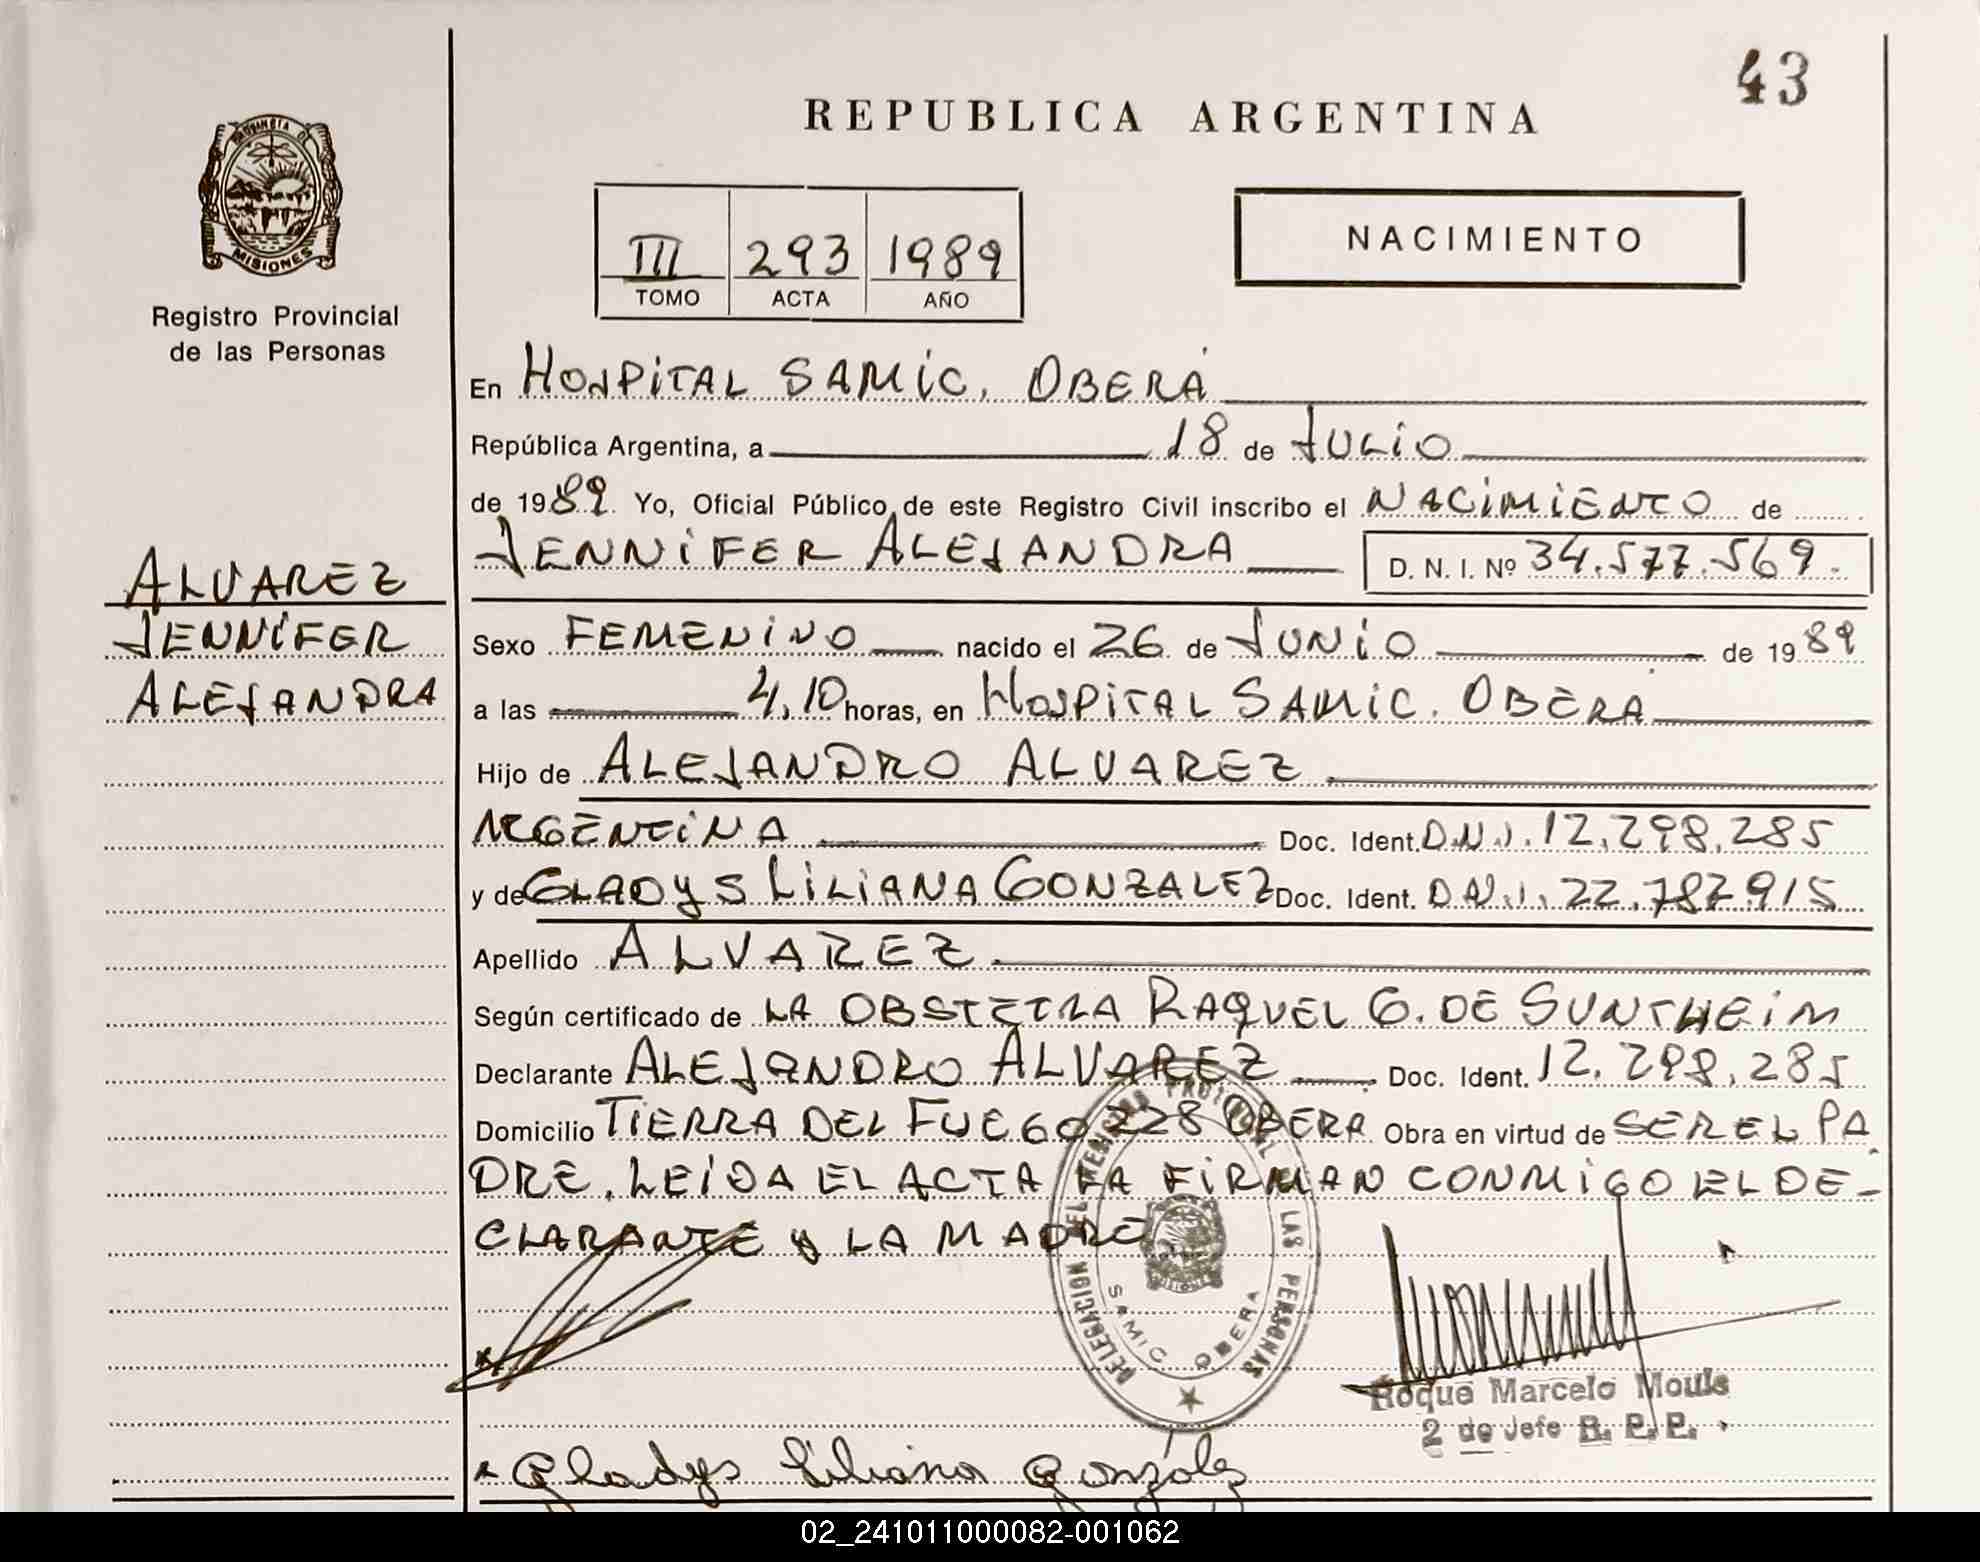 43
REPUBLICA ARGENTINA
PROVINCIA DE
MISIONES
Registro Provincial
de las Personas
III 293 1989
TOMO ACTA AÑO
NACIMIENTO
En HOSPITAL SAMIC. OBERÁ
República Argentina, a 18 de JULIO
de 1989. Yo, Oficial Público de este Registro Civil inscribo el NACIMIENTO de
JENNIFER ALEJANDRA D. N. I. Nº 34.577.569.
ALVAREZ
JENNIFER
ALEJANDRA
Sexo FEMENINO nacido el 26 de JUNIO de 1989
a las 4,10 horas, en HOSPITAL SAMIC. OBERÁ
Hijo de ALEJANDRO ALVAREZ
ARGENTINA Doc. Ident. D.N.I. 12.298.285
y de GLADYS LILIANA GONZALEZ Doc. Ident. D.N.I. 22.787.915
Apellido ALVAREZ
Según certificado de LA OBSTETRA RAQUEL G. DE SUNTHEIM
Declarante ALEJANDRO ALVAREZ Doc. Ident. 12.298.285
Domicilio TIERRA DEL FUEGO 228 OBERA Obra en virtud de SER EL PA
DRE. LEIDA EL ACTA LA FIRMAN CONMIGO EL DE-
CLARANTE Y LA MADRE
DELEGACION DEL REGISTRO PROVINCIAL DE LAS PERSONAS
SAMIC OBERA
Roque Marcelo Mouls
2 do Jefe R. P. P.
Gladys Liliana González
02_241011000082-001062